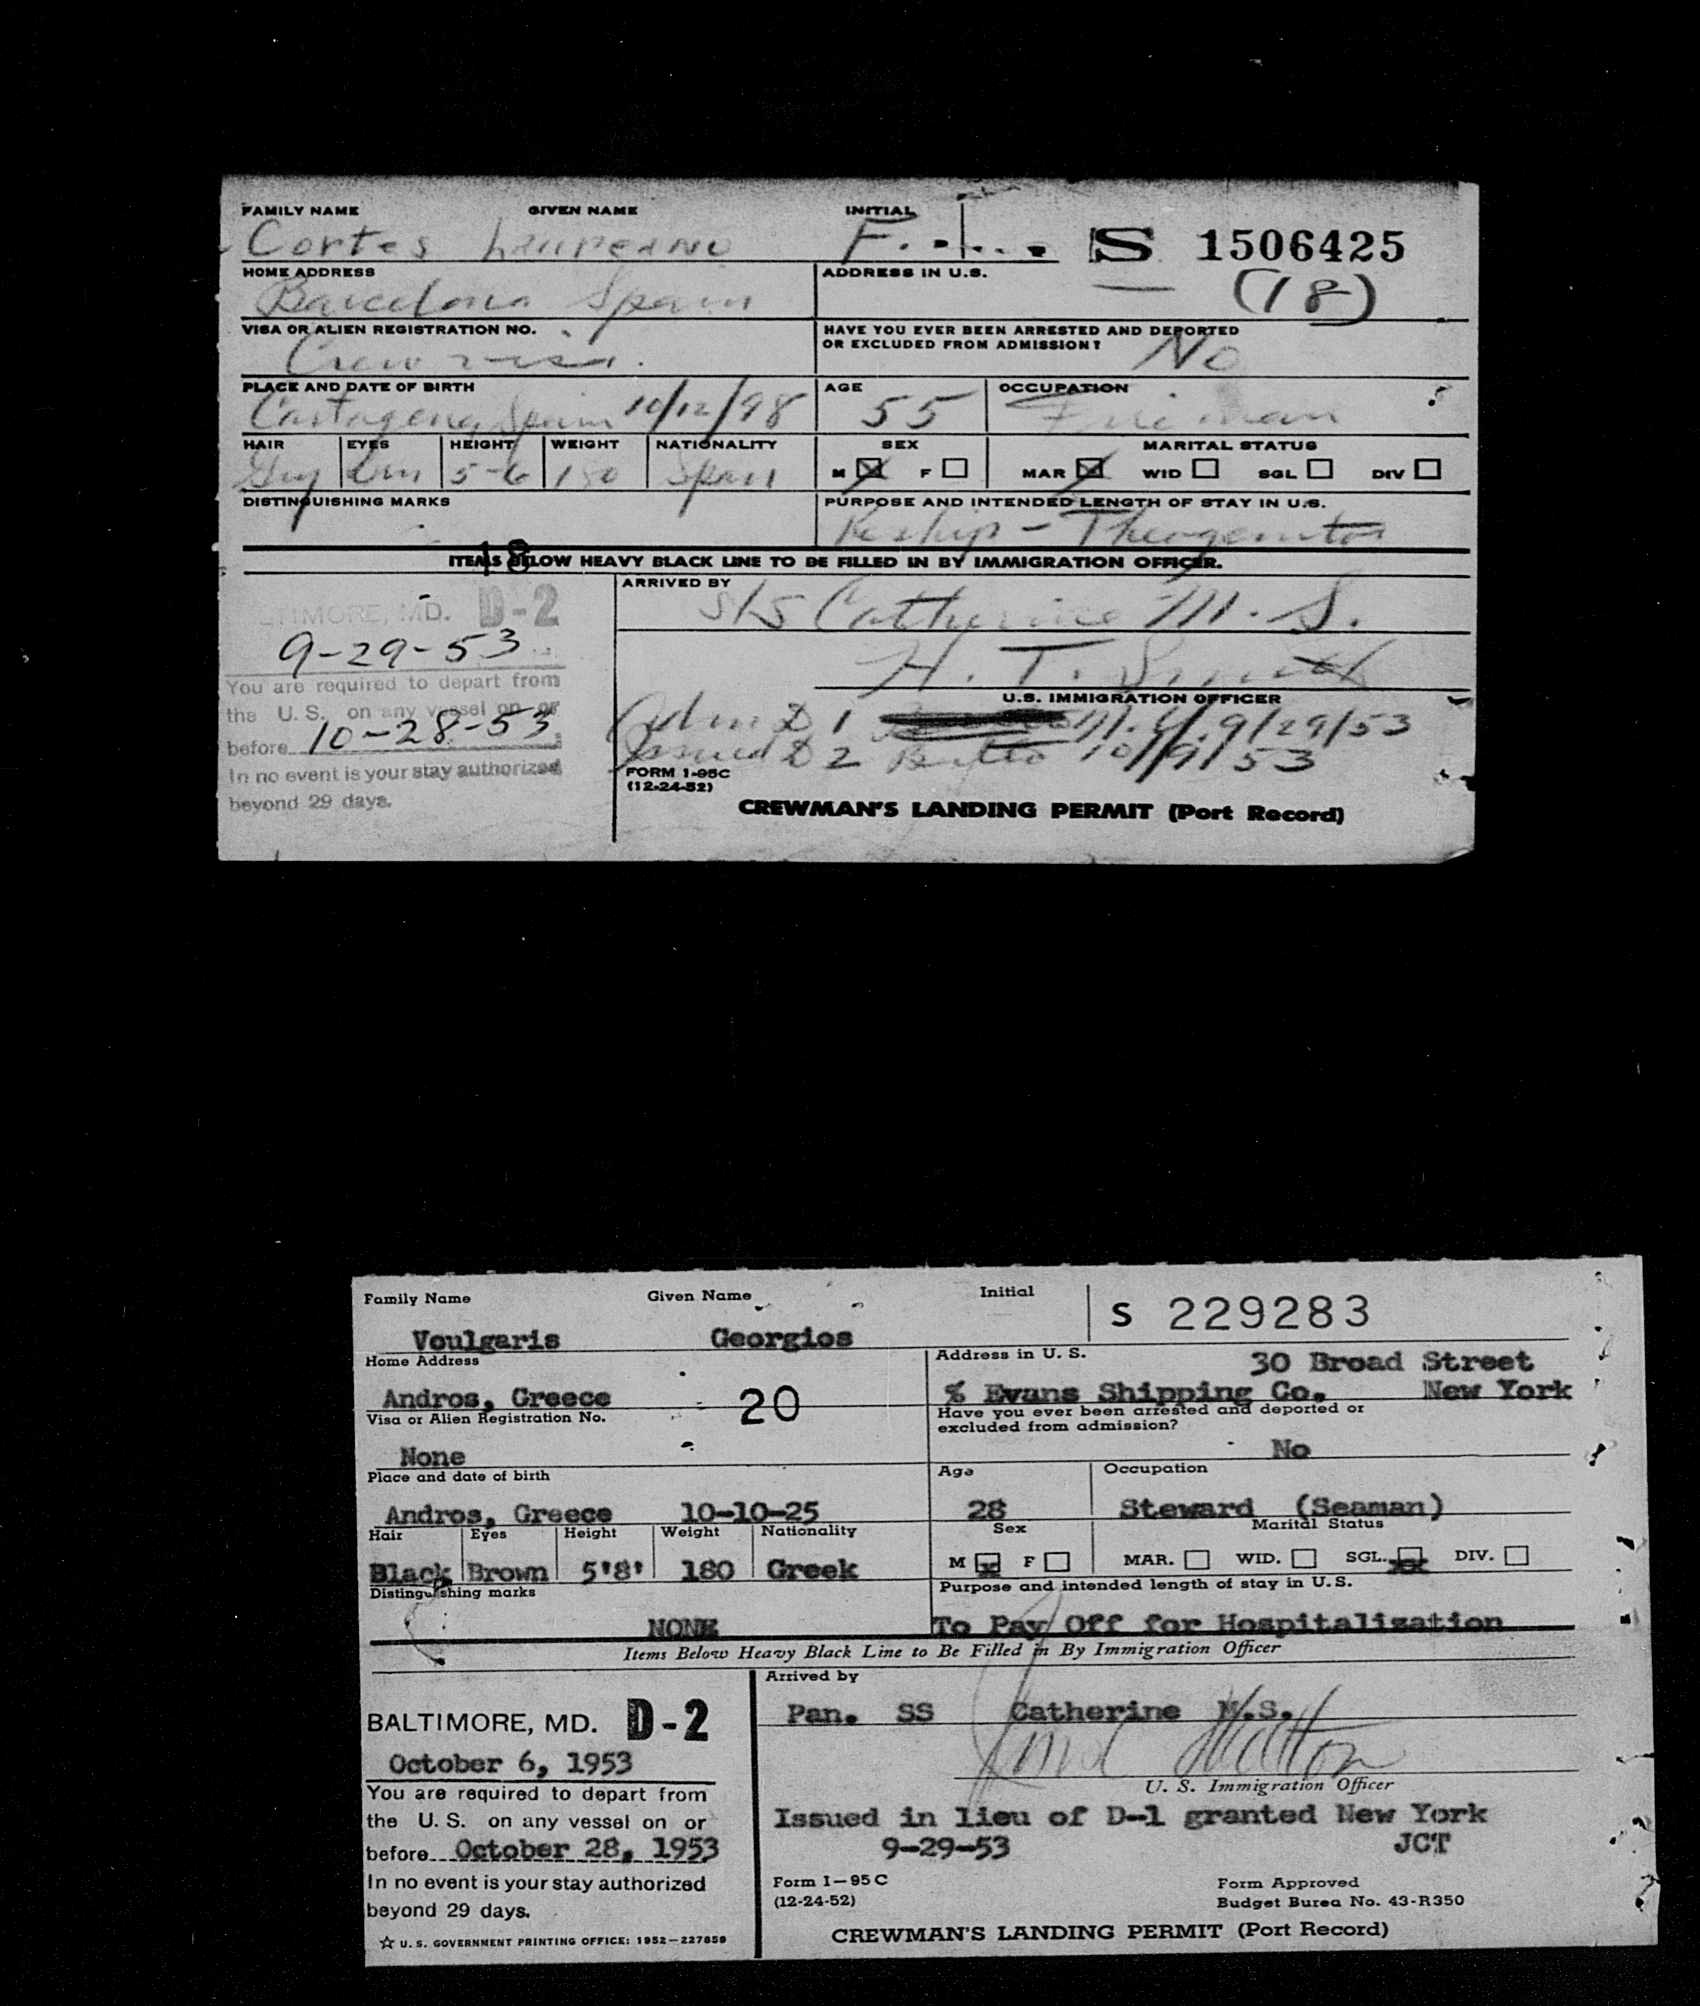 FAMILY NAME GIVEN NAME INITIAL
Cortes F. S 1506425
HOME ADDRESS ADDRESS IN U.S. (18)
Barcelona Spain
VISA OR ALIEN REGISTRATION NO. HAVE YOU EVER BEEN ARRESTED AND DEPORTED
OR EXCLUDED FROM ADMISSION?
Crew visa. No
PLACE AND DATE OF BIRTH AGE OCCUPATION
Cartagena Spain 10/12/98 55 Fireman
HAIR EYES HEIGHT WEIGHT NATIONALITY SEX MARITAL STATUS
Gry 5-6 150 Span M F MAR WID SGL DIV
DISTINGUISHING MARKS PURPOSE AND INTENDED LENGTH OF STAY IN U.S.
Reship - Theogenitor
18
ITEMS BELOW HEAVY BLACK LINE TO BE FILLED IN BY IMMIGRATION OFFICER.
ARRIVED BY
TIMORE, MD. D-2 S/S Catherine M. S.
9-29-53 H. T.
You are required to depart from U.S. IMMIGRATION OFFICER
the U.S. on any vessel on or Adm D 1 N.Y. 9/29/53
before 10-28-53 Issued D 2 Balto 10/9/53
In no event is your stay authorized FORM 1-95C
beyond 29 days. (12-24-52)
CREWMAN'S LANDING PERMIT (Port Record)
Family Name Given Name Initial S 229283
Voulgaris Georgios
Home Address Address in U. S. 30 Broad Street
Andros, Greece 20 % Evans Shipping Co. New York
Visa or Alien Registration No. Have you ever been arrested and deported or
excluded from admission?
None No
Place and date of birth Age Occupation
Andros, Greece 10-10-25 28 Steward (Seaman)
Hair Eyes Height Weight Nationality Sex Marital Status
Black Brown 5'8' 180 Greek M x F MAR. WID. SGL. xx DIV.
Distinguishing marks Purpose and intended length of stay in U.S.
NONE To Pay Off for Hospitalization
Items Below Heavy Black Line to Be Filled in By Immigration Officer
Arrived by
BALTIMORE, MD. D-2 Pan. SS Catherine M.S.
October 6, 1953
You are required to depart from U. S. Immigration Officer
the U.S. on any vessel on or Issued in lieu of D-1 granted New York
before October 28, 1953 9-29-53 JCT
In no event is your stay authorized Form I-95 C Form Approved
beyond 29 days. (12-24-52) Budget Burea No. 43-R350
☆ U. S. GOVERNMENT PRINTING OFFICE: 1952-227859 CREWMAN'S LANDING PERMIT (Port Record)